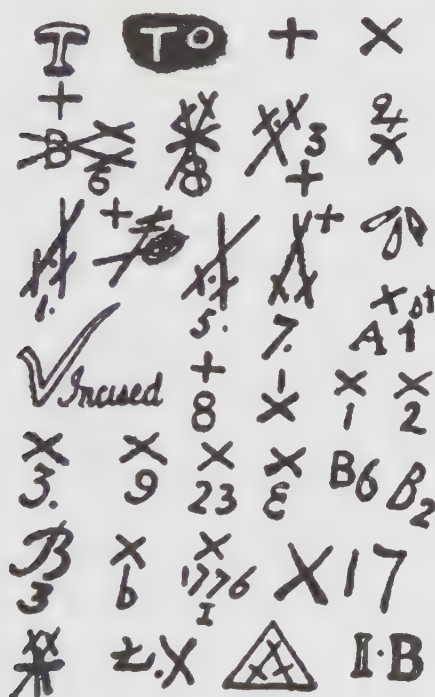 T TO + ×
+
B 6 8 3 + 4 ×
+ +
1. 5. 7. A 1
Incised + 8 × 1 × 2
× 3. × 9 × 23 × ε B6 B2
B 3 × b × 1776 I X 17
t.X I·B